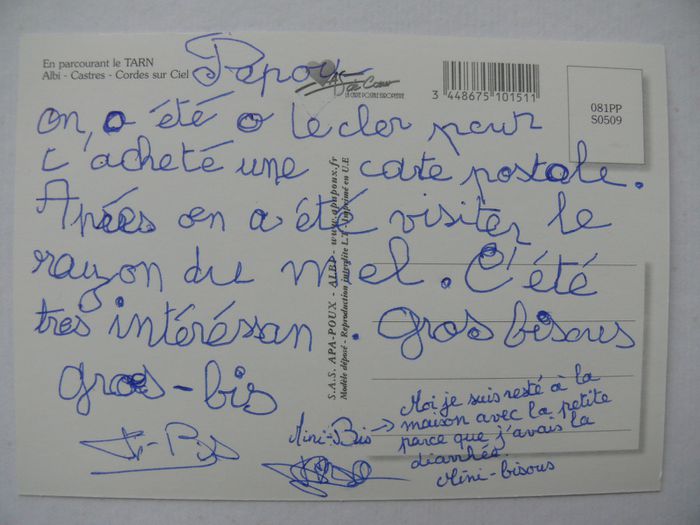 En parcourant le TARN
Albi - Castres - Cordes sur Ciel
Papou
AS de Coeur
LA CARTE POSTALE EUROPEENNE
3 448675 101511
081PP
S0509
on a été a lecler pour
t'acheté une carte postale.
Apées on a été visiter le
rayon du miel. C'été
tres intéréssan. gros bisous
gros-bis
S.A.S. APA-POUX - ALBI - www.apapoux.fr
Modèle déposé - Reproduction interdite L.T - Imprimé en U.E
Mini-Bis →
Moi je suis resté à la
maison avec la petite
parce que j'avais la
diarrhée.
Mini-bisous